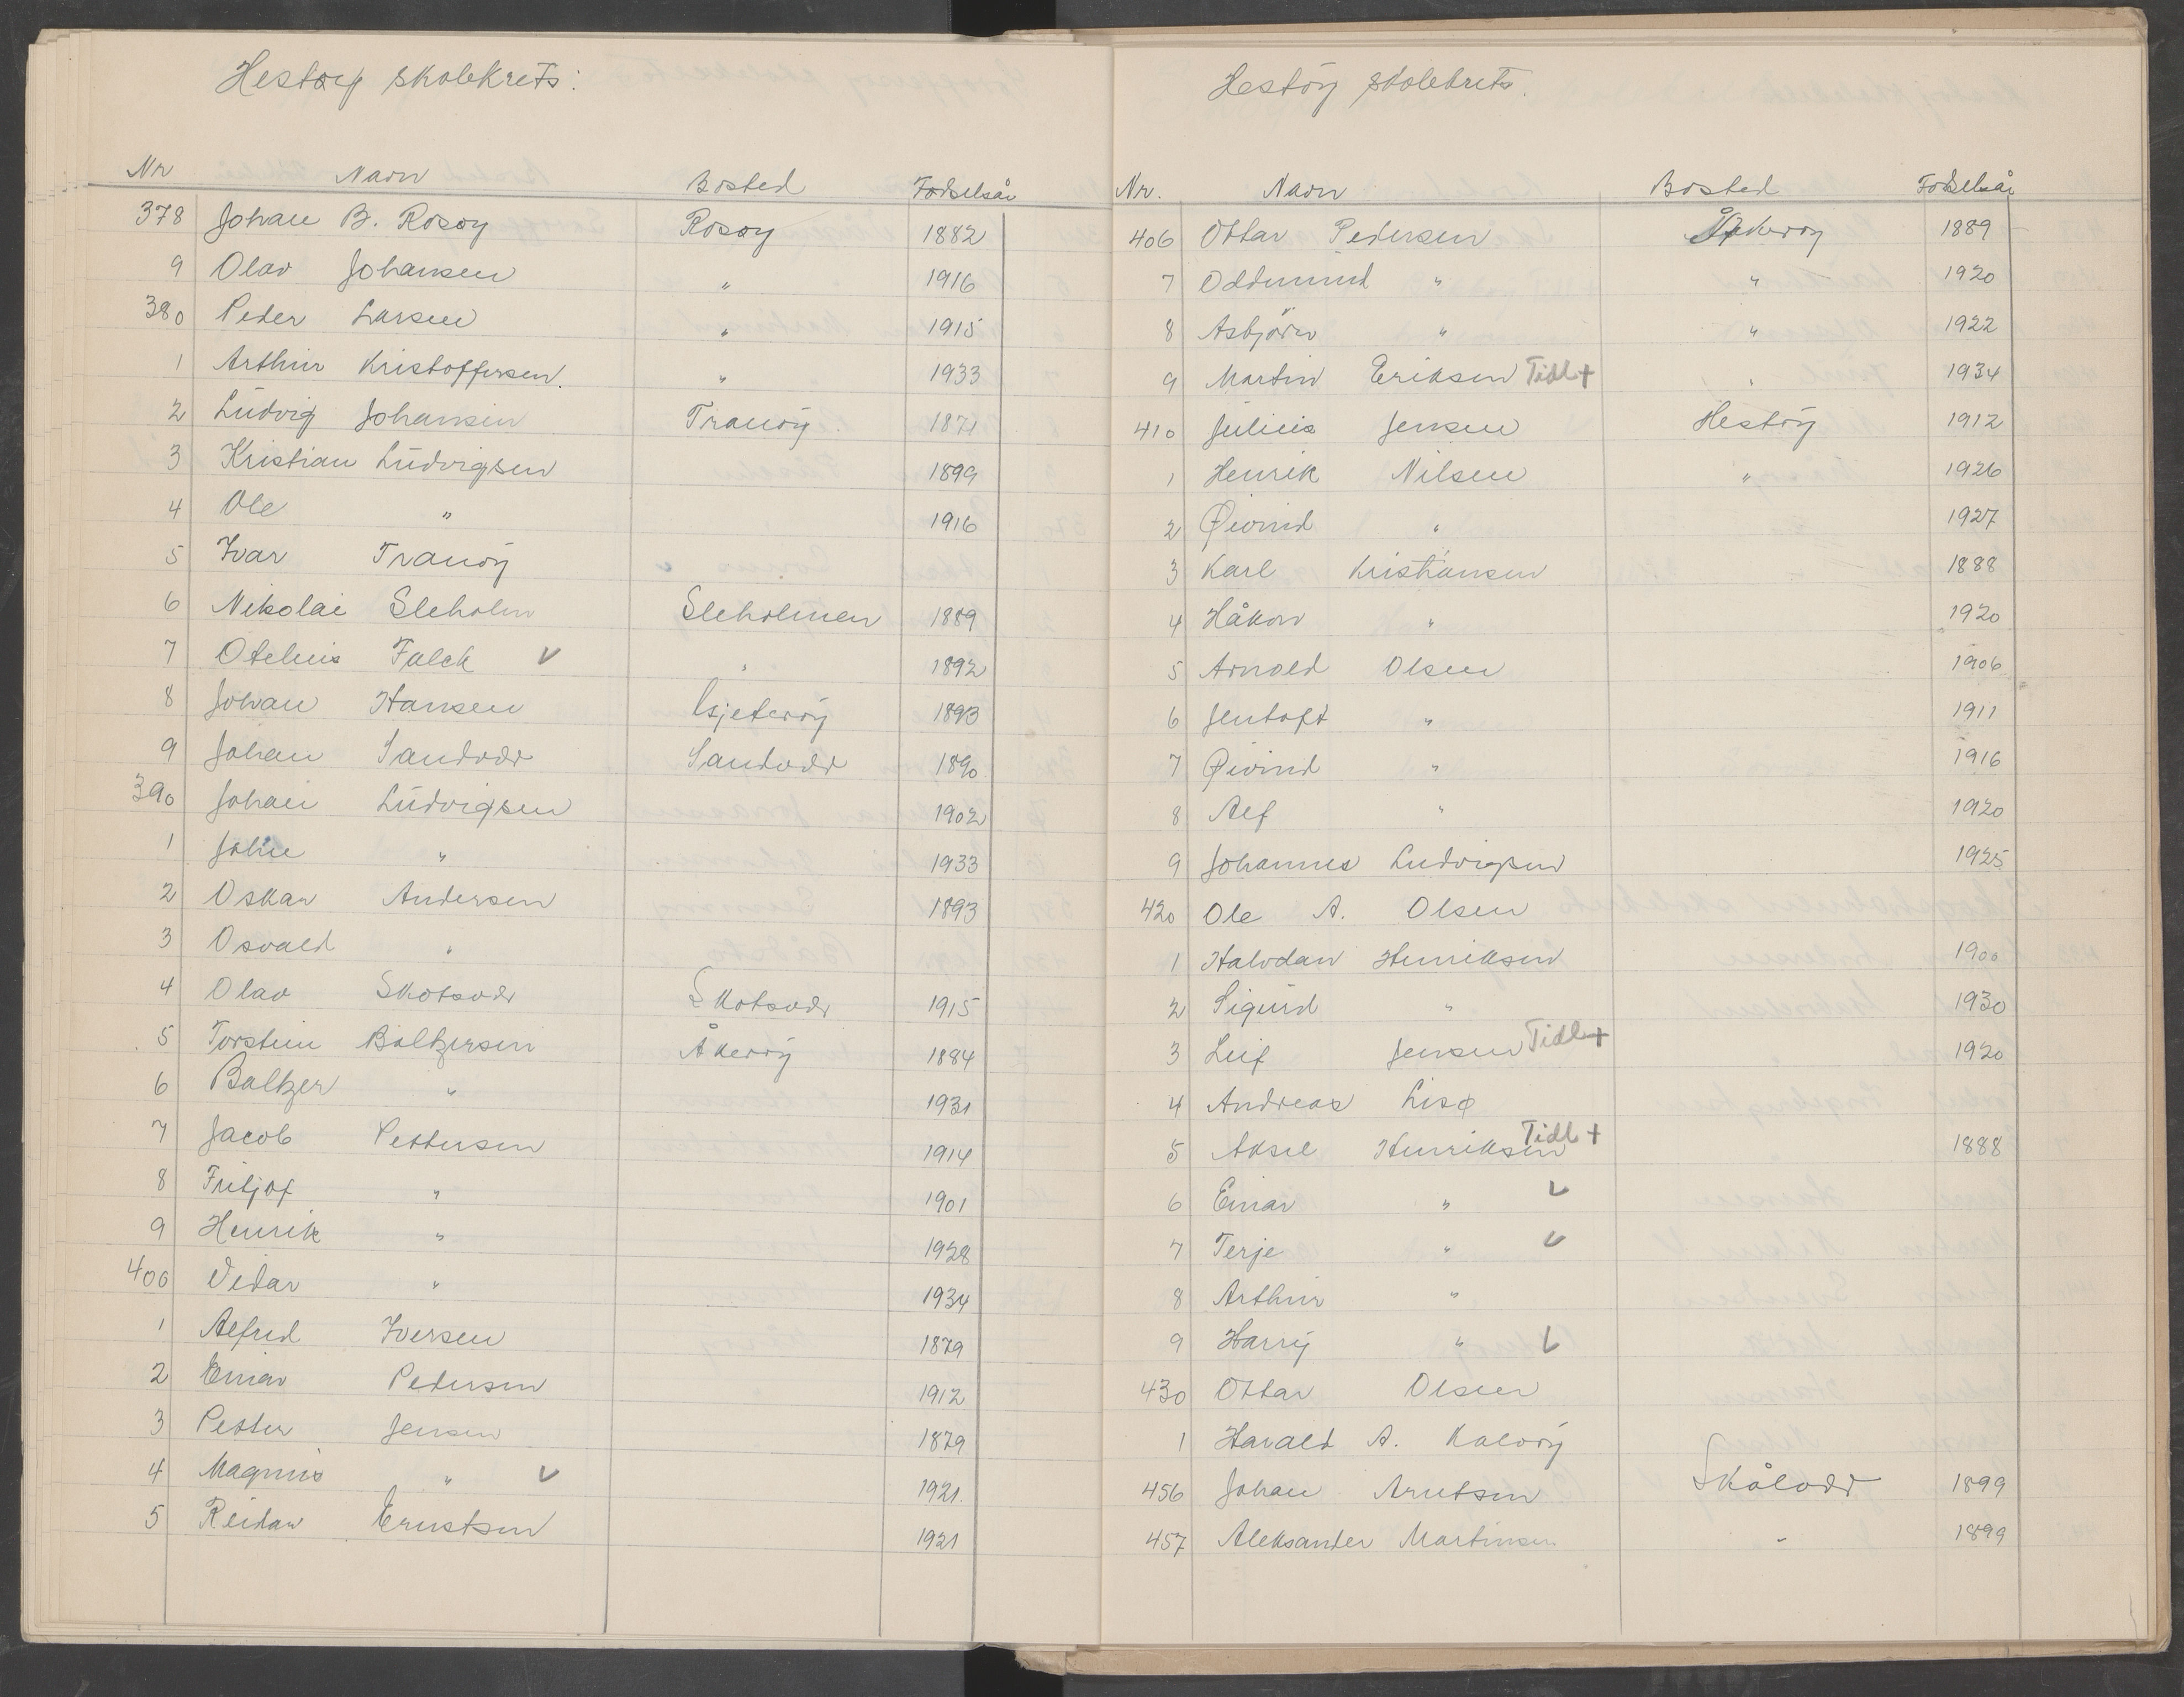 Hestøy skolekrets:
Nr Navn Bosted Fødselsår
378 Johan B. Rosøy Rosøy 1882
9 Olav Johansen " 1916
380 Peder Larsen " 1915
1 Arthur Kristoffersen. " 1933
2 Ludvig Johansen Tranøy 1871
3 Kristian Ludvigsen 1899
4 Ole " 1916
5 Ivar Tranøy
6 Nikolai Sleholm Sleholmen 1889
7 Otelius Falck v " 1892
8 Johan Hansen Gjeterøy 1893
9 Johan Sandvær Sandvær 1890
390 Johan Ludvigsen 1902
1 John " 1933
2 Oskar Andersen 1893
3 Osvald "
4 Olav Skotsvær Skotsvær 1915
5 Torstein Baltzersen Åkerøy 1884
6 Baltzer " 1931
7 Jacob Pettersen 1914
8 Fritjof " 1901
9 Henrik " 1928
400 Vidar " 1934
1 Alfred Iversen 1879
2 Einar Pedersen 1912
3 Petter Jensen 1879
4 Magnus " v 1921
5 Reidar Ernstsen 1921
Hestöy skolekrets.
Nr. Navn Bosted Fødselsår
406 Ottar Pedersen Åkerøy 1889
7 Oddmund " " 1920
8 Asbjörn " " 1922
9 Martin Eriksen Tidl + " 1934
410 Julius Jensen Hestöy 1912
1 Henrik Nilsen " 1926
2 Øivind " 1927
3 Karl Kristiansen 1888
4 Håkon " 1920
5 Arnold Olsen 1906
6 Jentoft " 1911
7 Øivind " 1916
8 Alf " 1920
9 Johannes Ludvigsen 1925
420 Ole A. Olsen
1 Halvdan Henriksen 1900
2 Sigurd " 1930
3 Leif Jensen Tidl + 1920
4 Andreas Lisø
5 Aksel Henriksen Tidl + 1888
6 Einar " v
7 Terje " v
8 Arthur "
9 Harry " v
430 Ottar Olsen
1 Harald A. Kalvöy
456 Johan Arntsen Skålvær 1899
457 Aleksander Martinsen " 1899